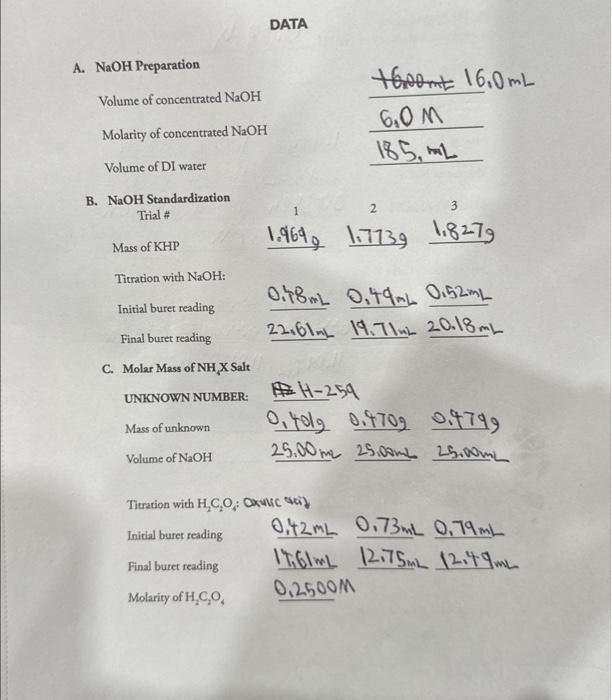 DATA
A. NaOH Preparation
Volume of concentrated NaOH 16.0 mL
Molarity of concentrated NaOH 6.0 M
Volume of DI water 185. mL
B. NaOH Standardization
Trial # 1 2 3
Mass of KHP 1.969g 1.773g 1.827g
Titration with NaOH:
Initial buret reading 0.48mL 0.49mL 0.52mL
Final buret reading 22.61mL 19.71mL 20.18mL
C. Molar Mass of NH₄X Salt
UNKNOWN NUMBER: H-259
Mass of unknown 0.401g 0.470g 0.479g
Volume of NaOH 25.00mL 25.00mL 25.00mL
Titration with H₂C₂O₄: Oxalic acid
Initial buret reading 0.42mL 0.73mL 0.79mL
Final buret reading 12.75mL 12.49mL
Molarity of H₂C₂O₄ 0.2500M